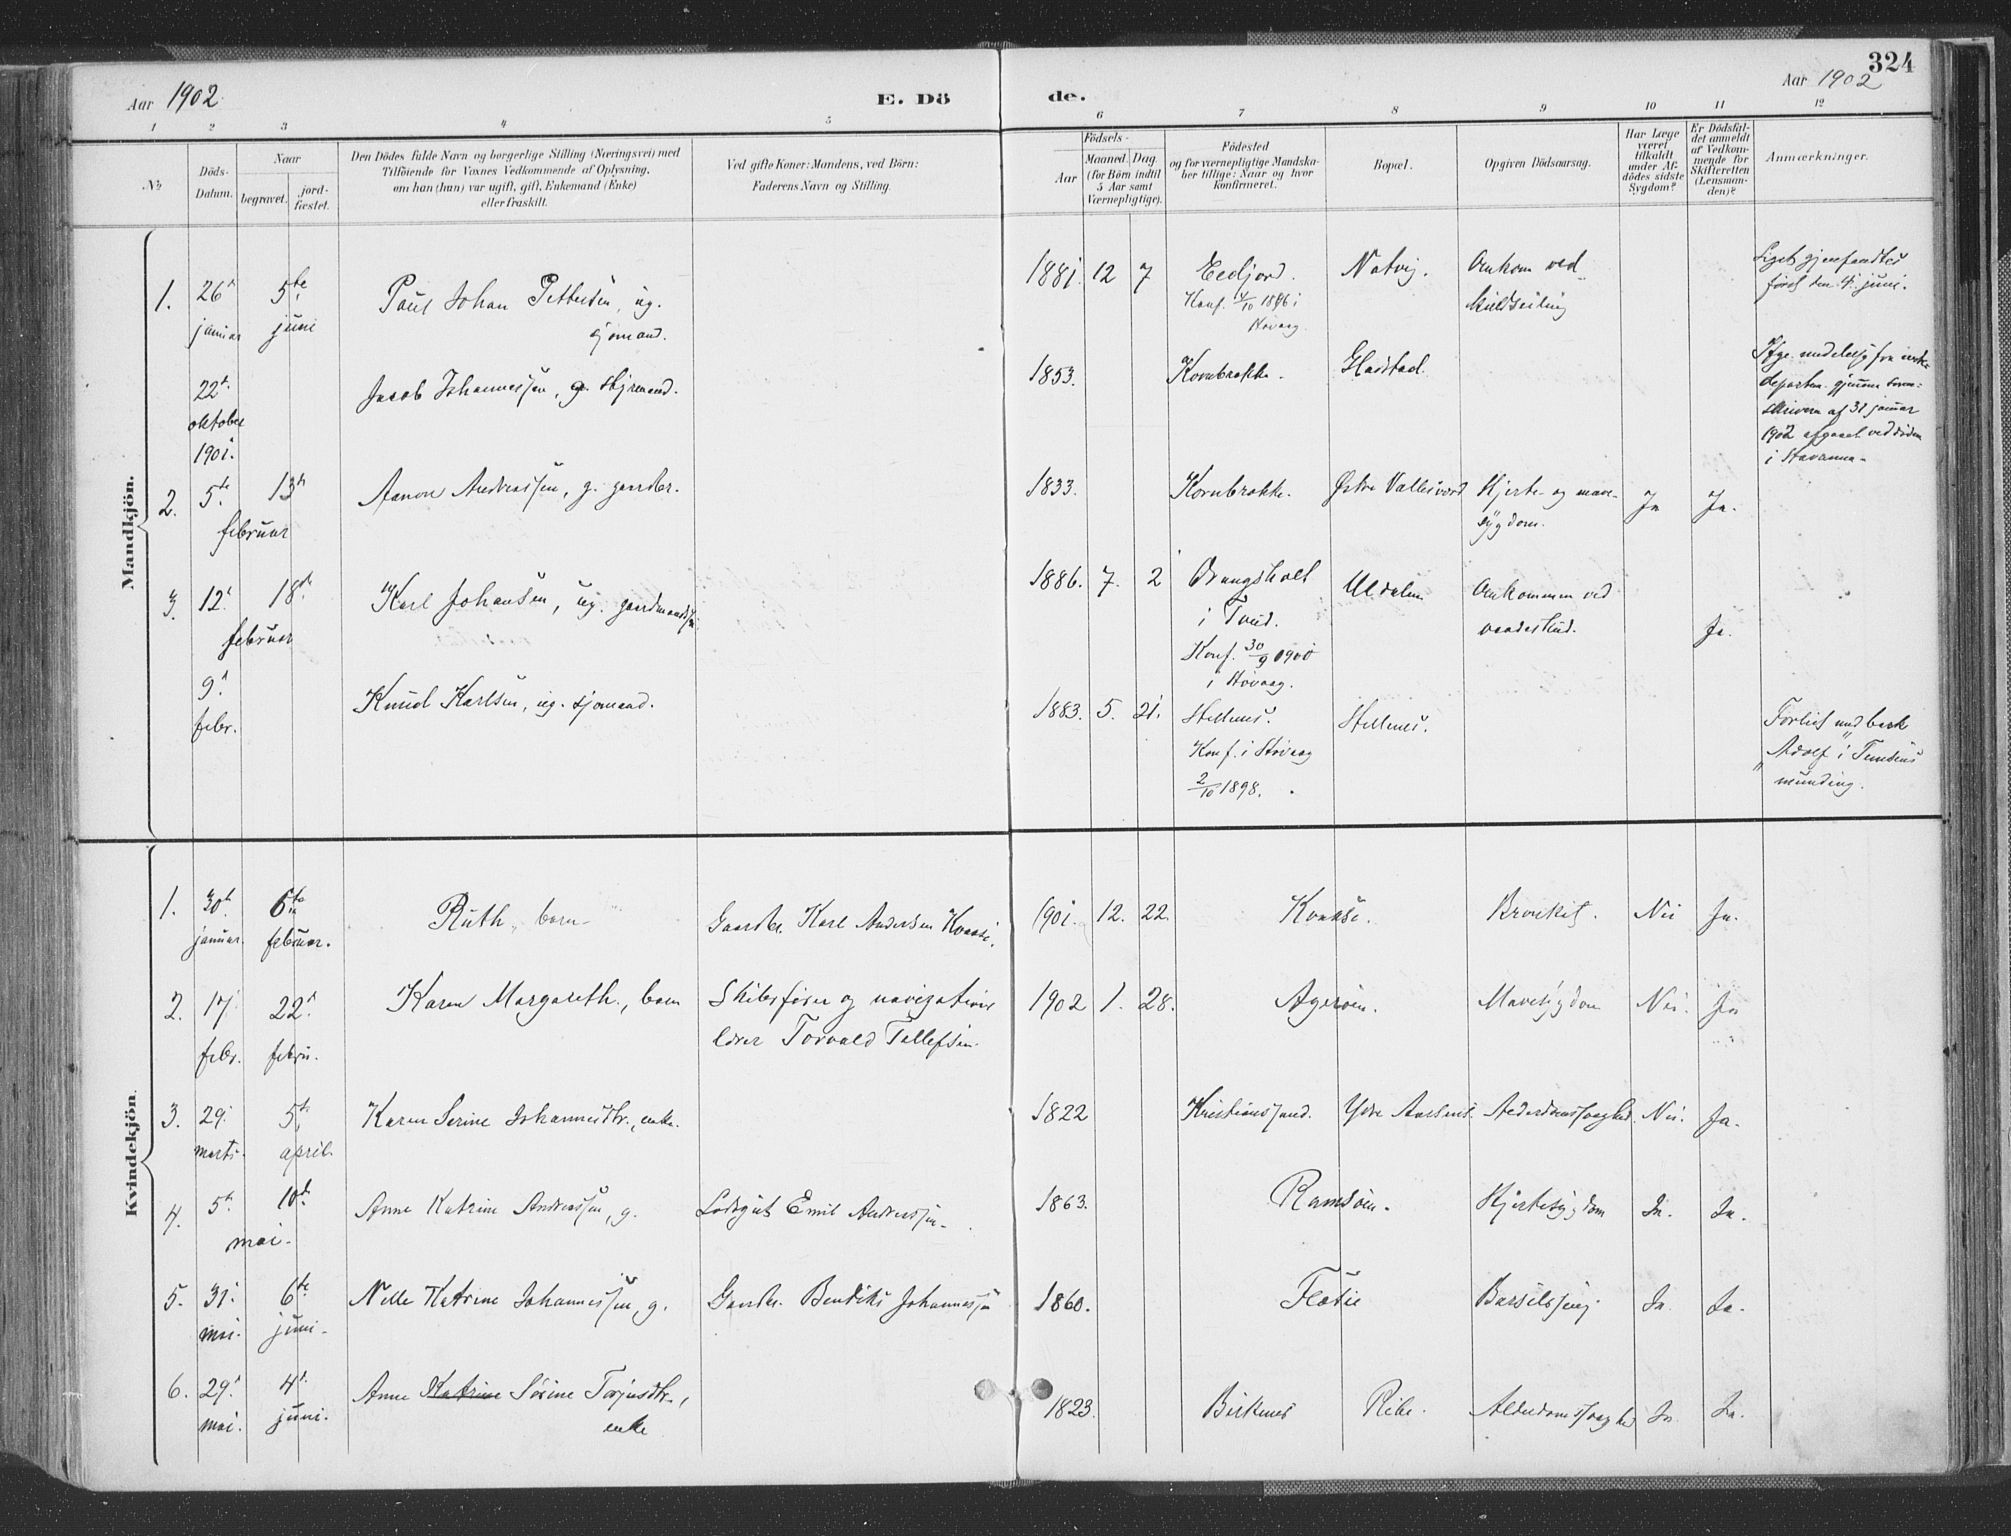 324
Aar 1902
E. Dö
de.
Aar 1902
1 2 3 4 5 6 7 8 9 10 11 12
No
Döds-
Datum.
Naar
begravet.
jord-
fæstet.
Den Dödes fulde Navn og borgerlige Stilling (Næringsvei) med
Tilföiende for Voxnes Vedkommende af Oplysning,
om han (hun) var ugift, gift, Enkemand (Enke)
eller fraskilt.
Ved gifte Koner: Mandens, ved Börn:
Faderens Navn og Stilling.
Födsels-
Aar
Maaned. Dag.
(for Börn indtil
5 Aar samt
Værnepligtige).
Födested
og for værnepligtige Mandska-
ber tillige: Naar og hvor
konfirmeret.
Bopæl.
Opgiven Dödsaarsag.
Har Læge
været
tilkaldt
under Af-
dödes sidste
Sygdom?
Er Dödsfal-
det anmeldt
af Vedkom-
mende for
Skifteretten
(Lensman-
den)?
Anmærkninger.
Mandkjön.
1. 26 januar 5te juni
Paul Johan Pettersen, ug.
sjømand.
1881 12 7
Konf. 1886 i
Høvaag.
Natvig.
Omkom ved
kuldseiling
Liget gjenfandtes
først den 4. juni.
22 oktober 1901.
Jacob Johannessen, g. styrmand.
1853.
Kornbrække.
Hæstad.
af 31 januar
1902
2. 5te 13de februar
Aanon Andreassen, g. gaardbr.
1833.
Kornbrække.
Østre Vallesværd
Hjerte- og mave-
sygdom.
Ja
Ja.
3. 12. 18de februar
Karl Johansen, ug. gaardmandssøn
1886. 7. 2
Drangsholt
i Tveid.
Konf. 30/9 1900
i Høvaag.
Uldalen
Omkommen ved
vaadeskud.
Ja.
9. febr.
Knud Karlsen, ug. sjømand.
1883. 5. 21.
Stellenes.
Konf. i Høvaag
2/10 1898.
Stellenes.
Forlist med bark
"Adolf" i Temsens
munding.
Kvindekjön.
1. 30te januar. 6te februar.
Ruth, barn
Gaardbr. Karl Andersen Kvaase.
1901. 12. 22.
Kvaase.
Bronkit.
Nei
Ja.
2. 17. febr. 22. febru.
Karen Margareth., barn
Skibsfører og navigations
lærer Torvald Tellefsen.
1902 1. 28.
Agerøen.
Mavesygdom
Nei.
Ja
3. 29. marts. 5te april.
Karen Serine Johannesdtr., enke.
1822
Kristianssand.
Ydre Aarsnes.
Alderdomssvaghed.
Nei.
Ja.
4. 5te 10de mai.
Anne Katrine Andreassen, g.
Lodsgut Emil Andreassen.
1863.
Ramsøen.
Hjertesygdom
Ja.
Ja.
5. 31. mai. 6te juni.
Nelle Katrine Johannessen, g.
Gaardbr. Bendiks Johannessen
1860.
Barselsseng.
Ja.
Ja.
6. 29. mai. 4. juni.
Anne Katrine Sørine Torjusdtr.,
enke
1823.
Birkenes
Ribe.
Alderdomssvaghed
Ja.
Ja.